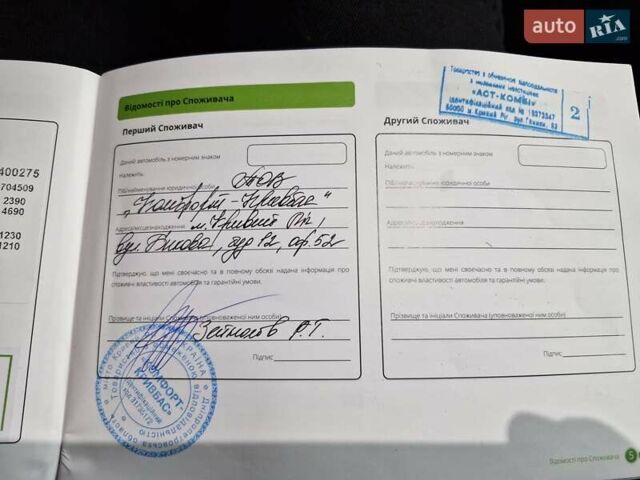 auto RIA.com
Товариство з обмеженою відповідальністю
з іноземними інвестиціями
«АСТ-КОМБІ»
2
Відомості про Споживача
Перший Споживач
Другий Споживач
400275
704509
2390
4690
1230
1210
Даний автомобіль з номерним знаком
Належить:
ПІБ/найменування юридичної особи ТОВ
„Комфорт-Кривбас"
Адреса/місцезнаходження м. Кривий Ріг,
вул. Бикова, буд 12, оф. 52
Підтверджую, що мені своєчасно та в повному обсязі надана інформація про
споживчі властивості автомобіля та гарантійні умови.
Прізвище та ініціали Споживача (уповноваженої ним особи)
Р. Г.
Підпис
Даний автомобіль з номерним знаком
Належить:
ПІБ/найменування юридичної особи
Адреса/місцезнаходження
Підтверджую, що мені своєчасно та в повному обсязі надана інформація про
споживчі властивості автомобіля та гарантійні умови.
Прізвище та ініціали Споживача (уповноваженої ним особи)
Підпис
«КОМФОРТ-
КРИВБАС»
УКРАЇНА
Дніпропетровська область
Відомості про Споживача 5